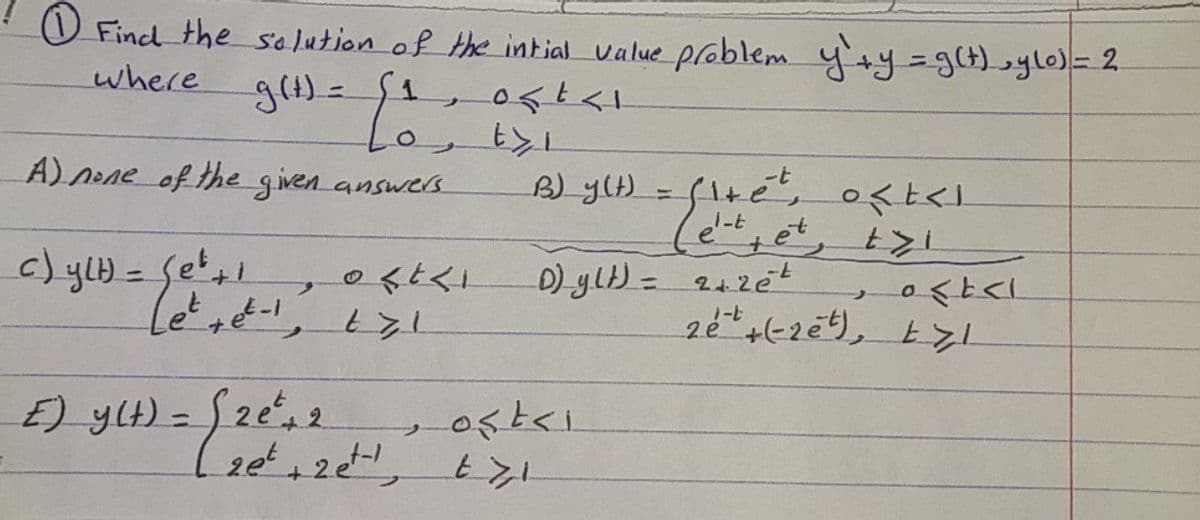 ① Find the solution of the intial value problem y'+y = g(t), y(0) = 2
where g(t) = { 1 , 0 ≤ t < 1
0 , t ≥ 1
A) none of the given answers B) y(t) = { 1+e^-t, 0 ≤ t < 1
e^1-t + e^-t, t ≥ 1
c) y(t) = { e^t+1 , 0 ≤ t < 1 D) y(t) = 2+2e^-t , 0 ≤ t < 1
e^t + e^t-1, t ≥ 1 2e^1-t + (-2e^-t), t ≥ 1
E) y(t) = { 2e^t + 2 , 0 ≤ t < 1
2e^t + 2e^t-1, t ≥ 1